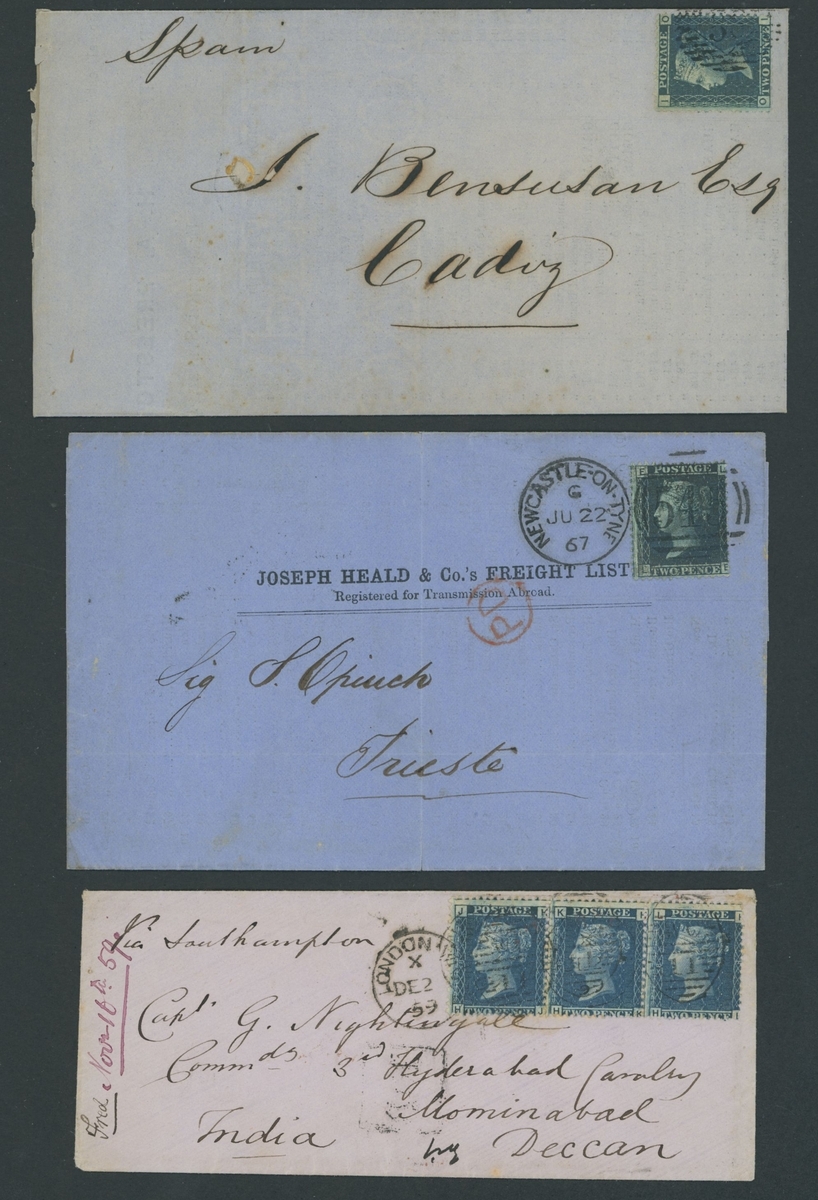 Spain
J. Bensusan Esq
Cadiz
POSTAGE
TWO PENCE
NEWCASTLE-ON-TYNE
G
JU 22
67
POSTAGE
TWO PENCE
JOSEPH HEALD & Co.'s FREIGHT LIST
Registered for Transmission Abroad.
PD
Sig S. Opinch
Trieste
Via Southampton
LONDON
X
DE 2
59
POSTAGE
TWO PENCE
POSTAGE
TWO PENCE
POSTAGE
TWO PENCE
Capt G. Nightingale
Commdg 3rd Hyderabad Cavalry
Mominabad
Deccan
India